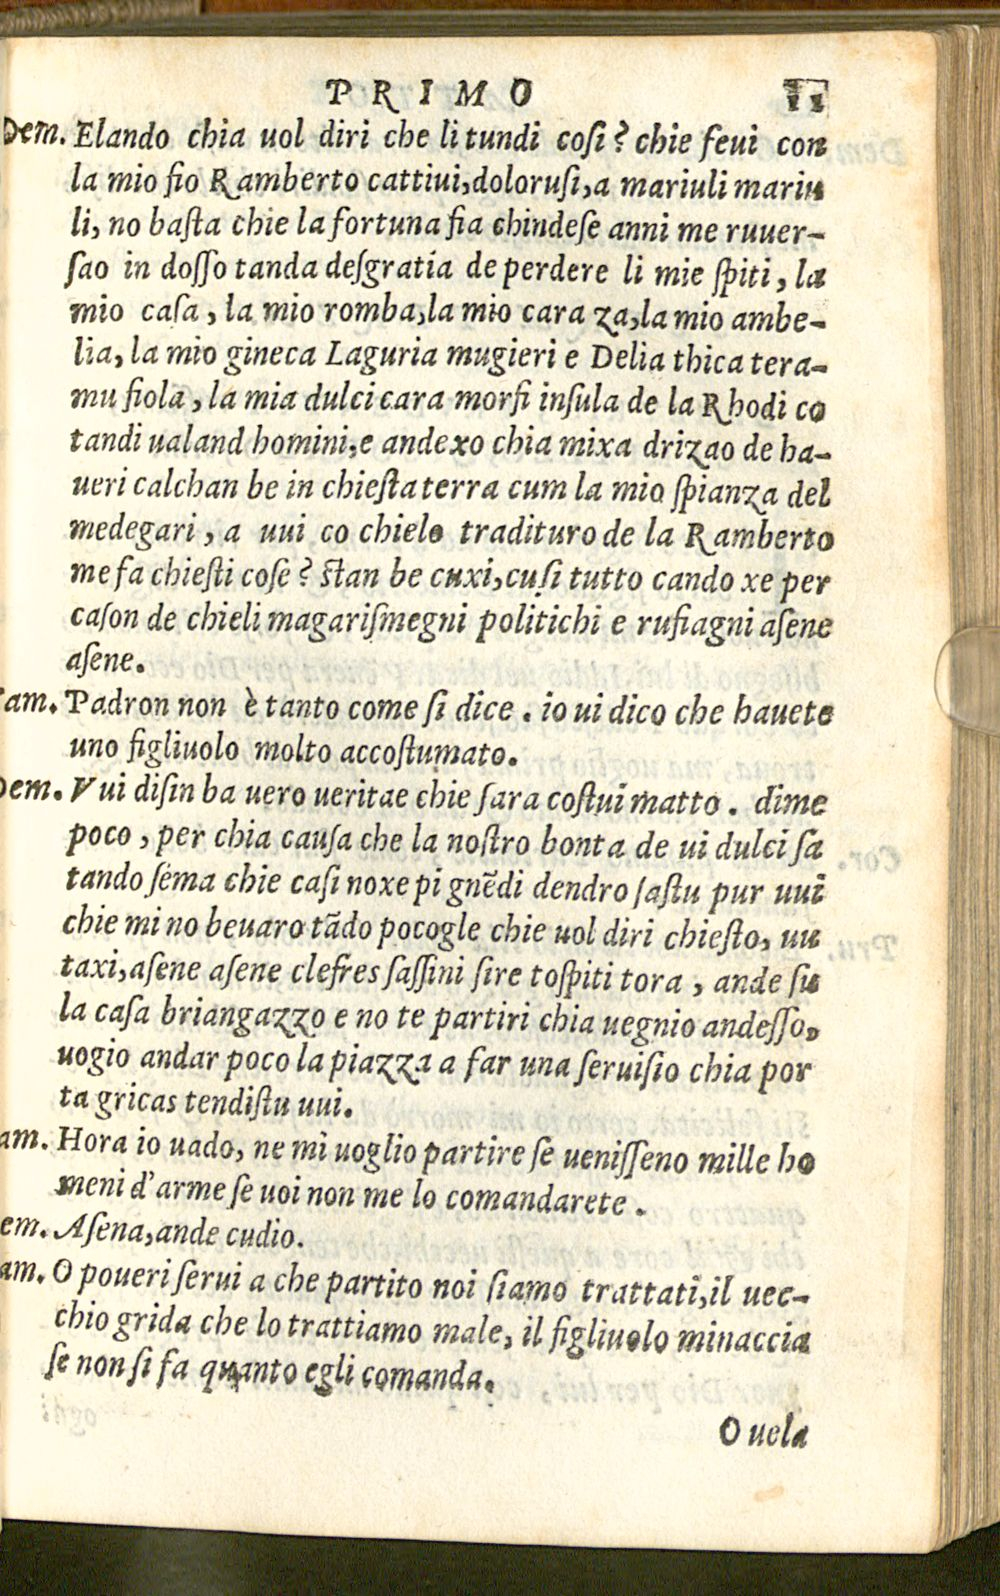 PRIMO 11
Dem. Elando chia uol diri che li tundi cosi? chie feui con
la mio fio Ramberto cattiui, dolorusi, a mariuli mariu
li, no basta chie la fortuna fia chindese anni me ruuer-
sao in dosso tanda desgratia de perdere li mie spiti, la
mio casa, la mio romba, la mio cara za, la mio ambe-
lia, la mio gineca Laguria mugieri e Delia thica tera-
mu fiola, la mia dulci cara morfi insula de la Rhodi co
tandi ualand homini, e andexo chia mixa drizao de ha-
ueri calchan be in chiesta terra cum la mio spianza del
medegari, a uui co chielo tradituro de la Ramberto
me fa chiesti cose? stan be cuxi, cusi tutto cando xe per
cason de chieli magarismegni politichi e rufiagni asene
asene.
am. Padron non è tanto come si dice. io ui dico che hauete
uno figliuolo molto accostumato.
Dem. Vui disin ba uero ueritae chie sara costui matto. dime
poco, per chia causa che la nostro bonta de ui dulci sa
tando sema chie casi noxe pi gnēdi dendro sastu pur uui
chie mi no beuaro tādo pocogle chie uol diri chiesto, uu
taxi, asene asene clefres sassini sire tospiti tora, ande su
la casa briangazzo e no te partiri chia uegnio andesso,
uogio andar poco la piazza a far una seruisio chia por
ta gricas tendistu uui.
am. Hora io uado, ne mi uoglio partire se uenisseno mille ho
meni d'arme se uoi non me lo comandarete.
em. Asena, ande cudio.
am. O poueri serui a che partito noi siamo trattati, il uec-
chio grida che lo trattiamo male, il figliuolo minaccia
se non si fa quanto egli comanda.
O uela